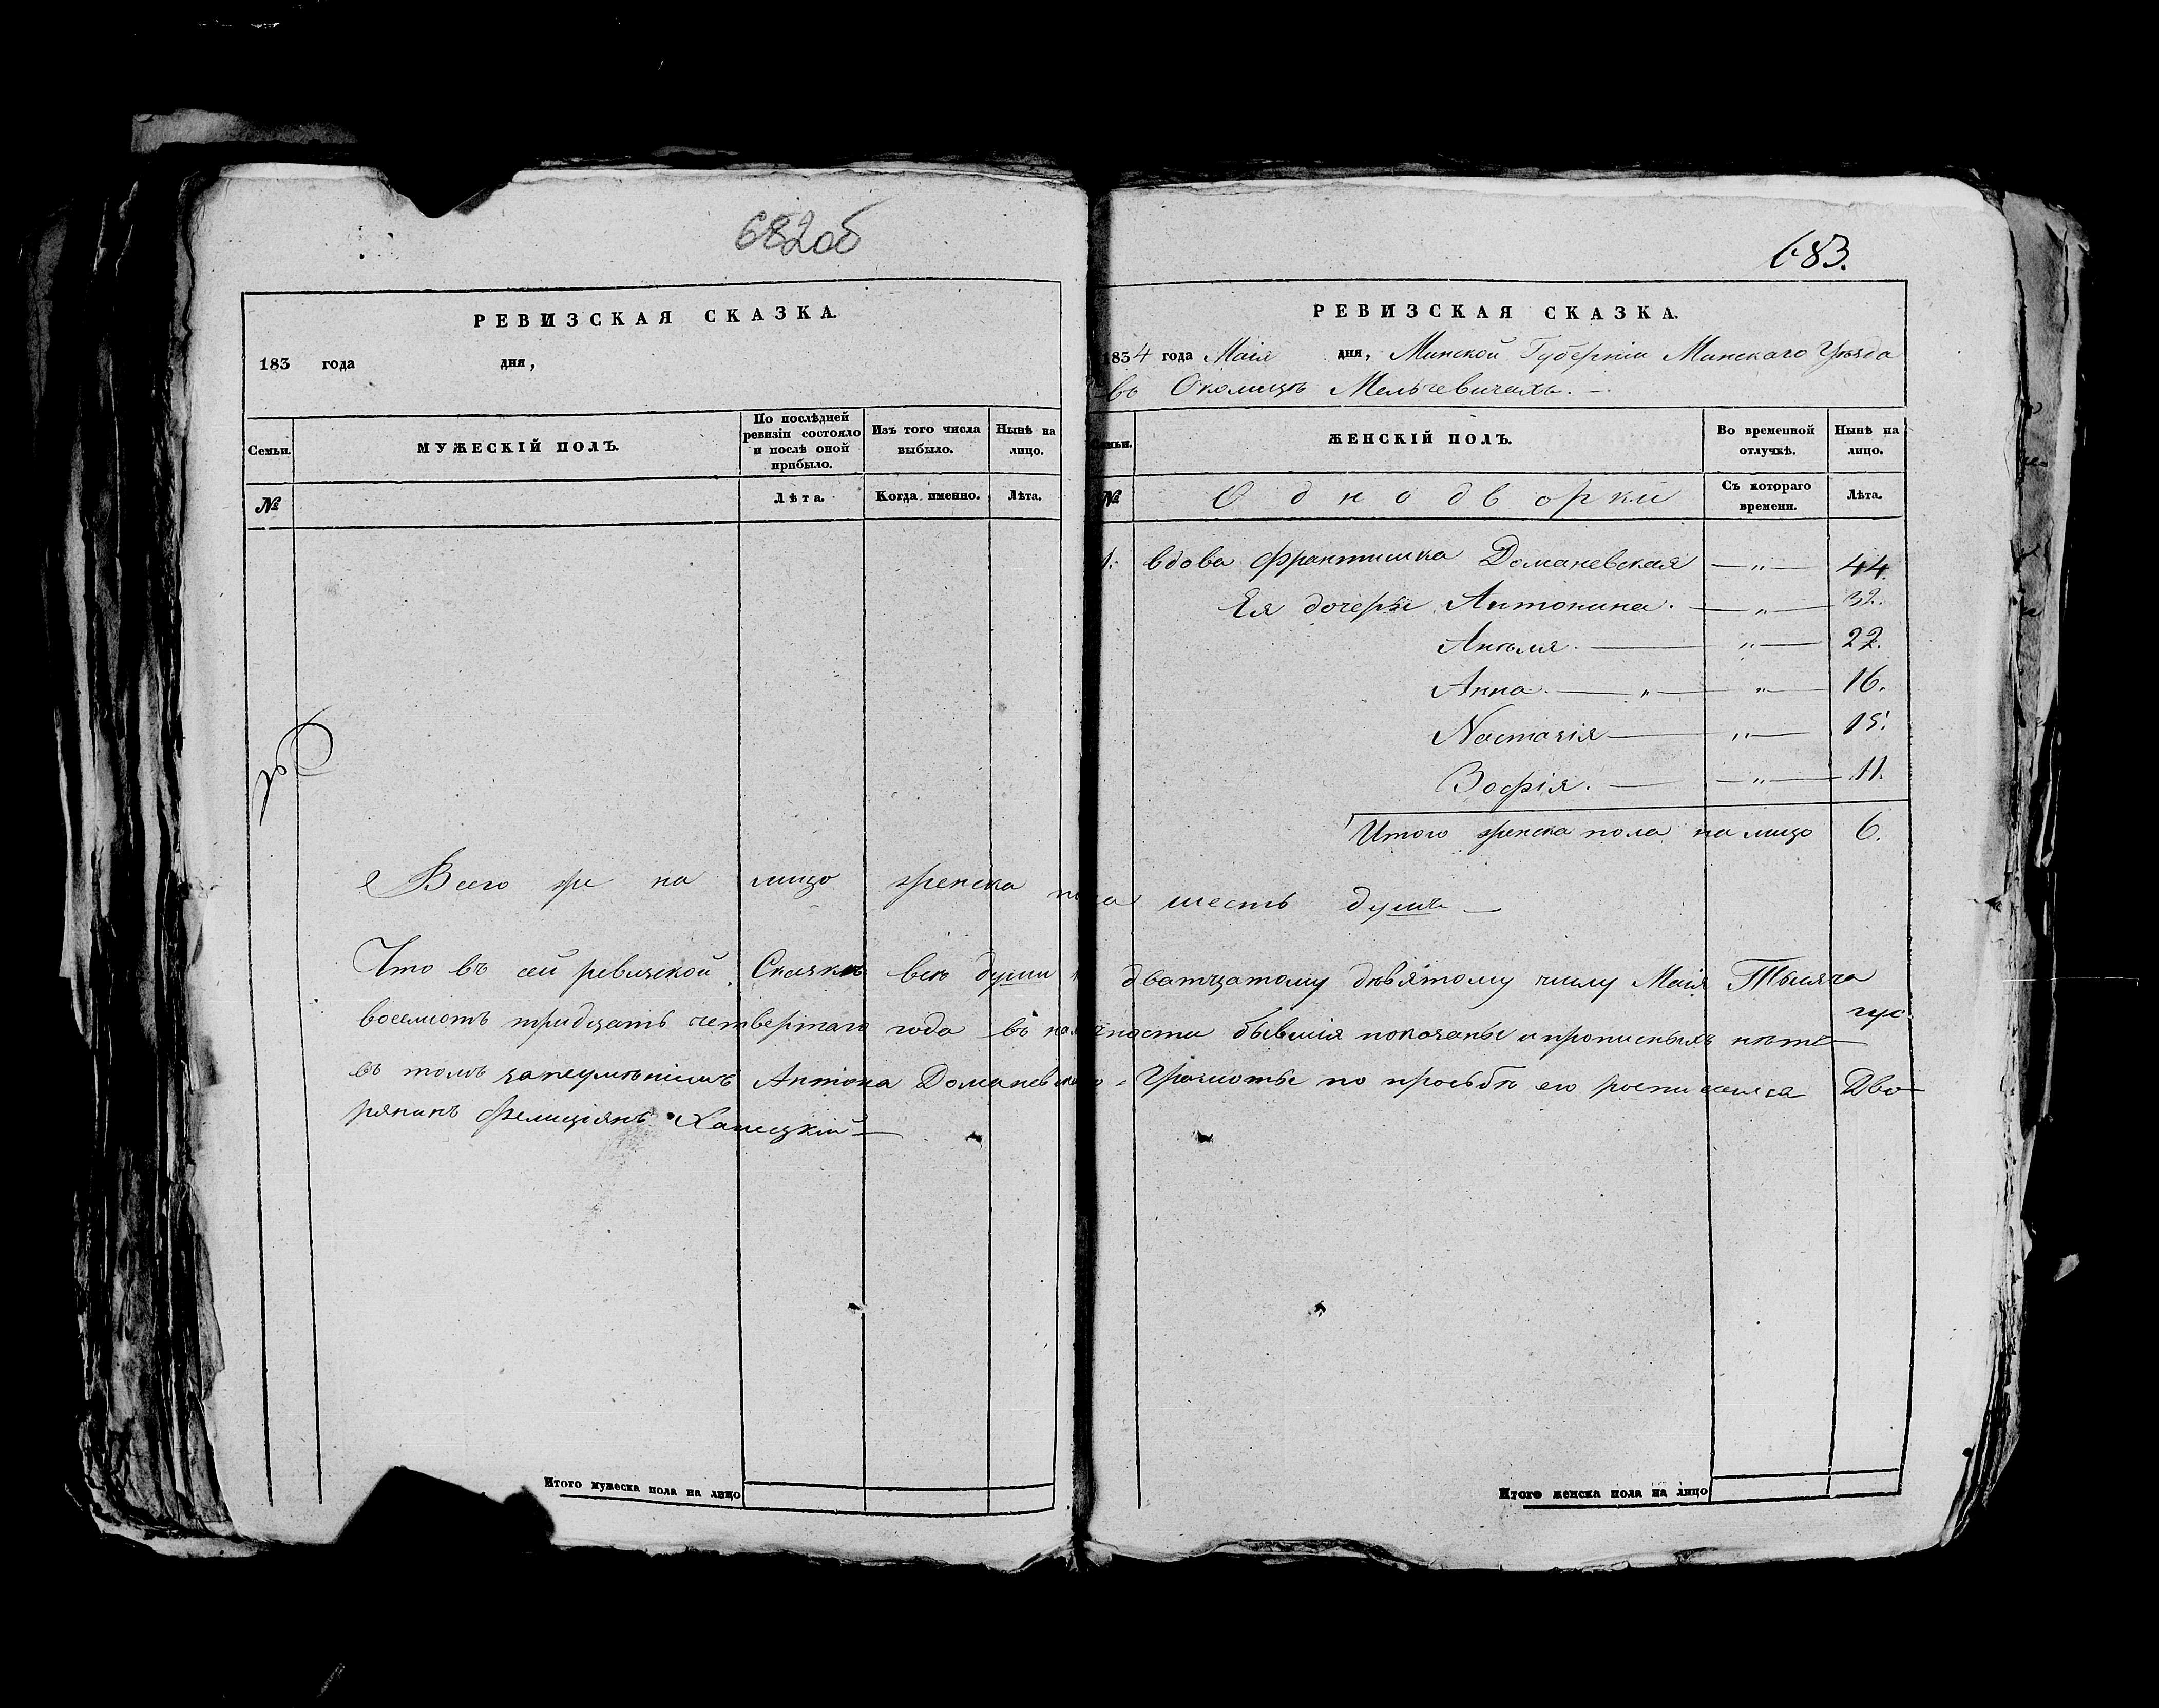 682об
РЕВИЗСКАЯ СКАЗКА.
183 года дня,
Семьи.
МУЖЕСКІЙ ПОЛЪ.
По послѣдней ревизіи состояло и послѣ оной прибыло.
Изъ того числа выбыло.
Нынѣ на лицо.
№
Лѣта.
Когда именно.
Лѣта.
683.
РЕВИЗСКАЯ СКАЗКА.
1834 года Маія дня, Минской Губерніи Минскаго Уѣзда
въ Околицѣ Мельчевичахъ. —
Семьи.
ЖЕНСКІЙ ПОЛЪ.
Во временной отлучкѣ.
Нынѣ на лицо.
№
Однодворки
Съ котораго времени.
Лѣта.
1. вдова Франтишка Доманевская — „ — 44.
Ея дочери Антонина. — „ — 32.
Анѣля — „ — 22.
Анна. — „ — „ — 16.
Настазія — „ — 15.
Зофія. — „ — 11.
Итого женска пола на лицо 6.
Всего же на лицо женска пола шесть душъ —
Что въ сей ревизской Сказкѣ всѣ души к дватцатому девятому числу Маія Тысяча
восемсотъ тридцать четвертаго года въ наличности бывшія показаны и прописныхъ нѣтъ
въ томъ за неумѣніемъ Антона Доманевскаго Грамоты по просьбѣ его росписался Дво-
рянинъ Фелиціянъ
Итого мужеска пола на лицо
Итого женска пола на лицо